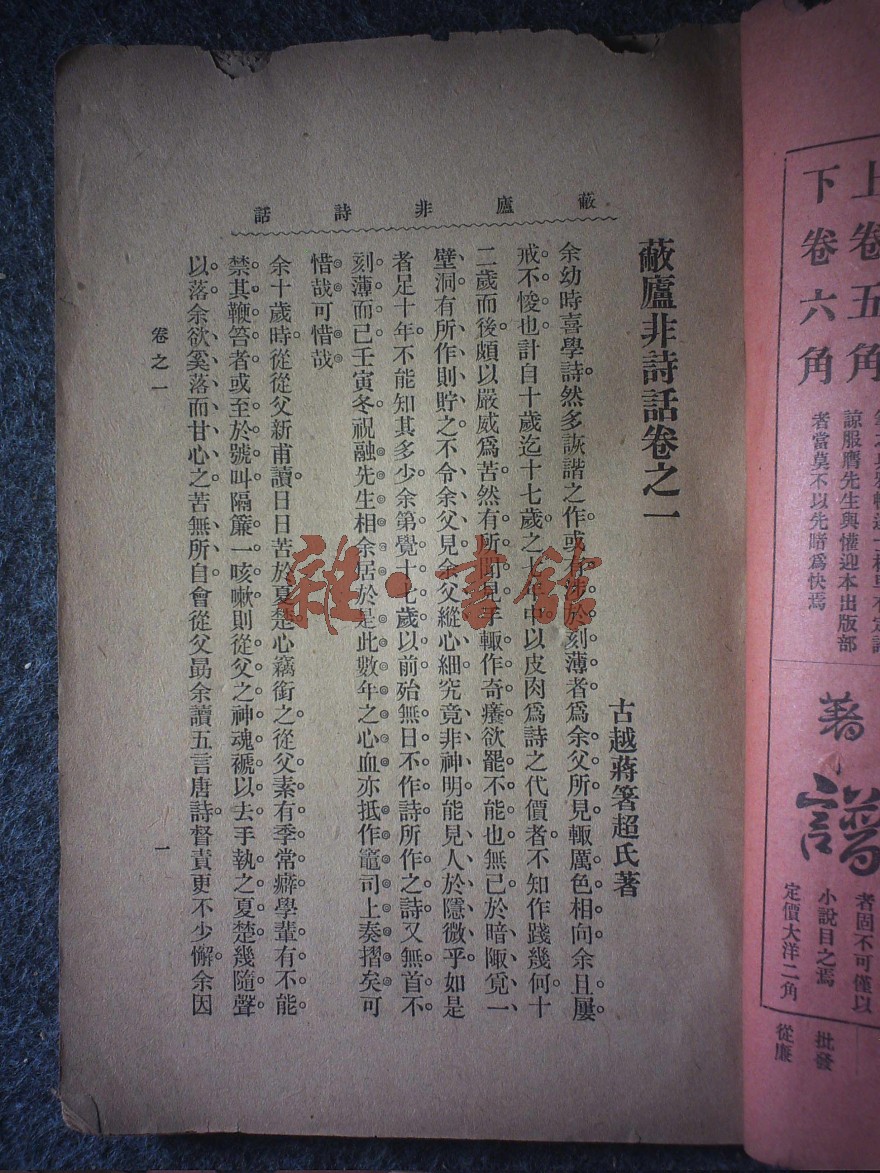 上卷五角
下卷六角
諒服膺先生與懽迎本出版部
者當莫不以先睹爲快焉
著
譜
者固不可僅以
小說目之焉
定價大洋二角
批發
從廉
蔽廬非詩話
蔽廬非詩話卷之一
古越蔣箸超氏著
余幼時喜學詩然多詼諧之作或有涉於刻薄者爲余父所見輙厲色相向余且屢
戒不悛也計自十歲迄十七歲之十年中以皮肉爲詩之代價者不知作踐幾何十
二歲而後頗以嚴威爲苦然有所聞見手輙作奇癢欲罷不能也無已於暗陬寛一
壁洞有所作則貯之不令余父見余父縱心細究竟非神明能見人於隱微乎如是
者足十年不能知其多少余第覺十七歲以前殆無日不作詩所作之詩又無首不
刻薄而已壬寅冬祝融先生相余居於是此數年之心血亦抵作竈司上奏摺矣可
惜哉可惜哉
余十歲時從從父新甫讀日日苦於夏楚心竊銜之從父素有季常癖學輩有不能
禁其鞭笞者或至於號叫隔簾一咳嗽則從父之神魂褫以去手執之夏楚幾隨聲
以落余欲奚落而甘心之苦無所自會從父勗余讀五言唐詩督責更不少懈余因
卷之一
一
雜·書館